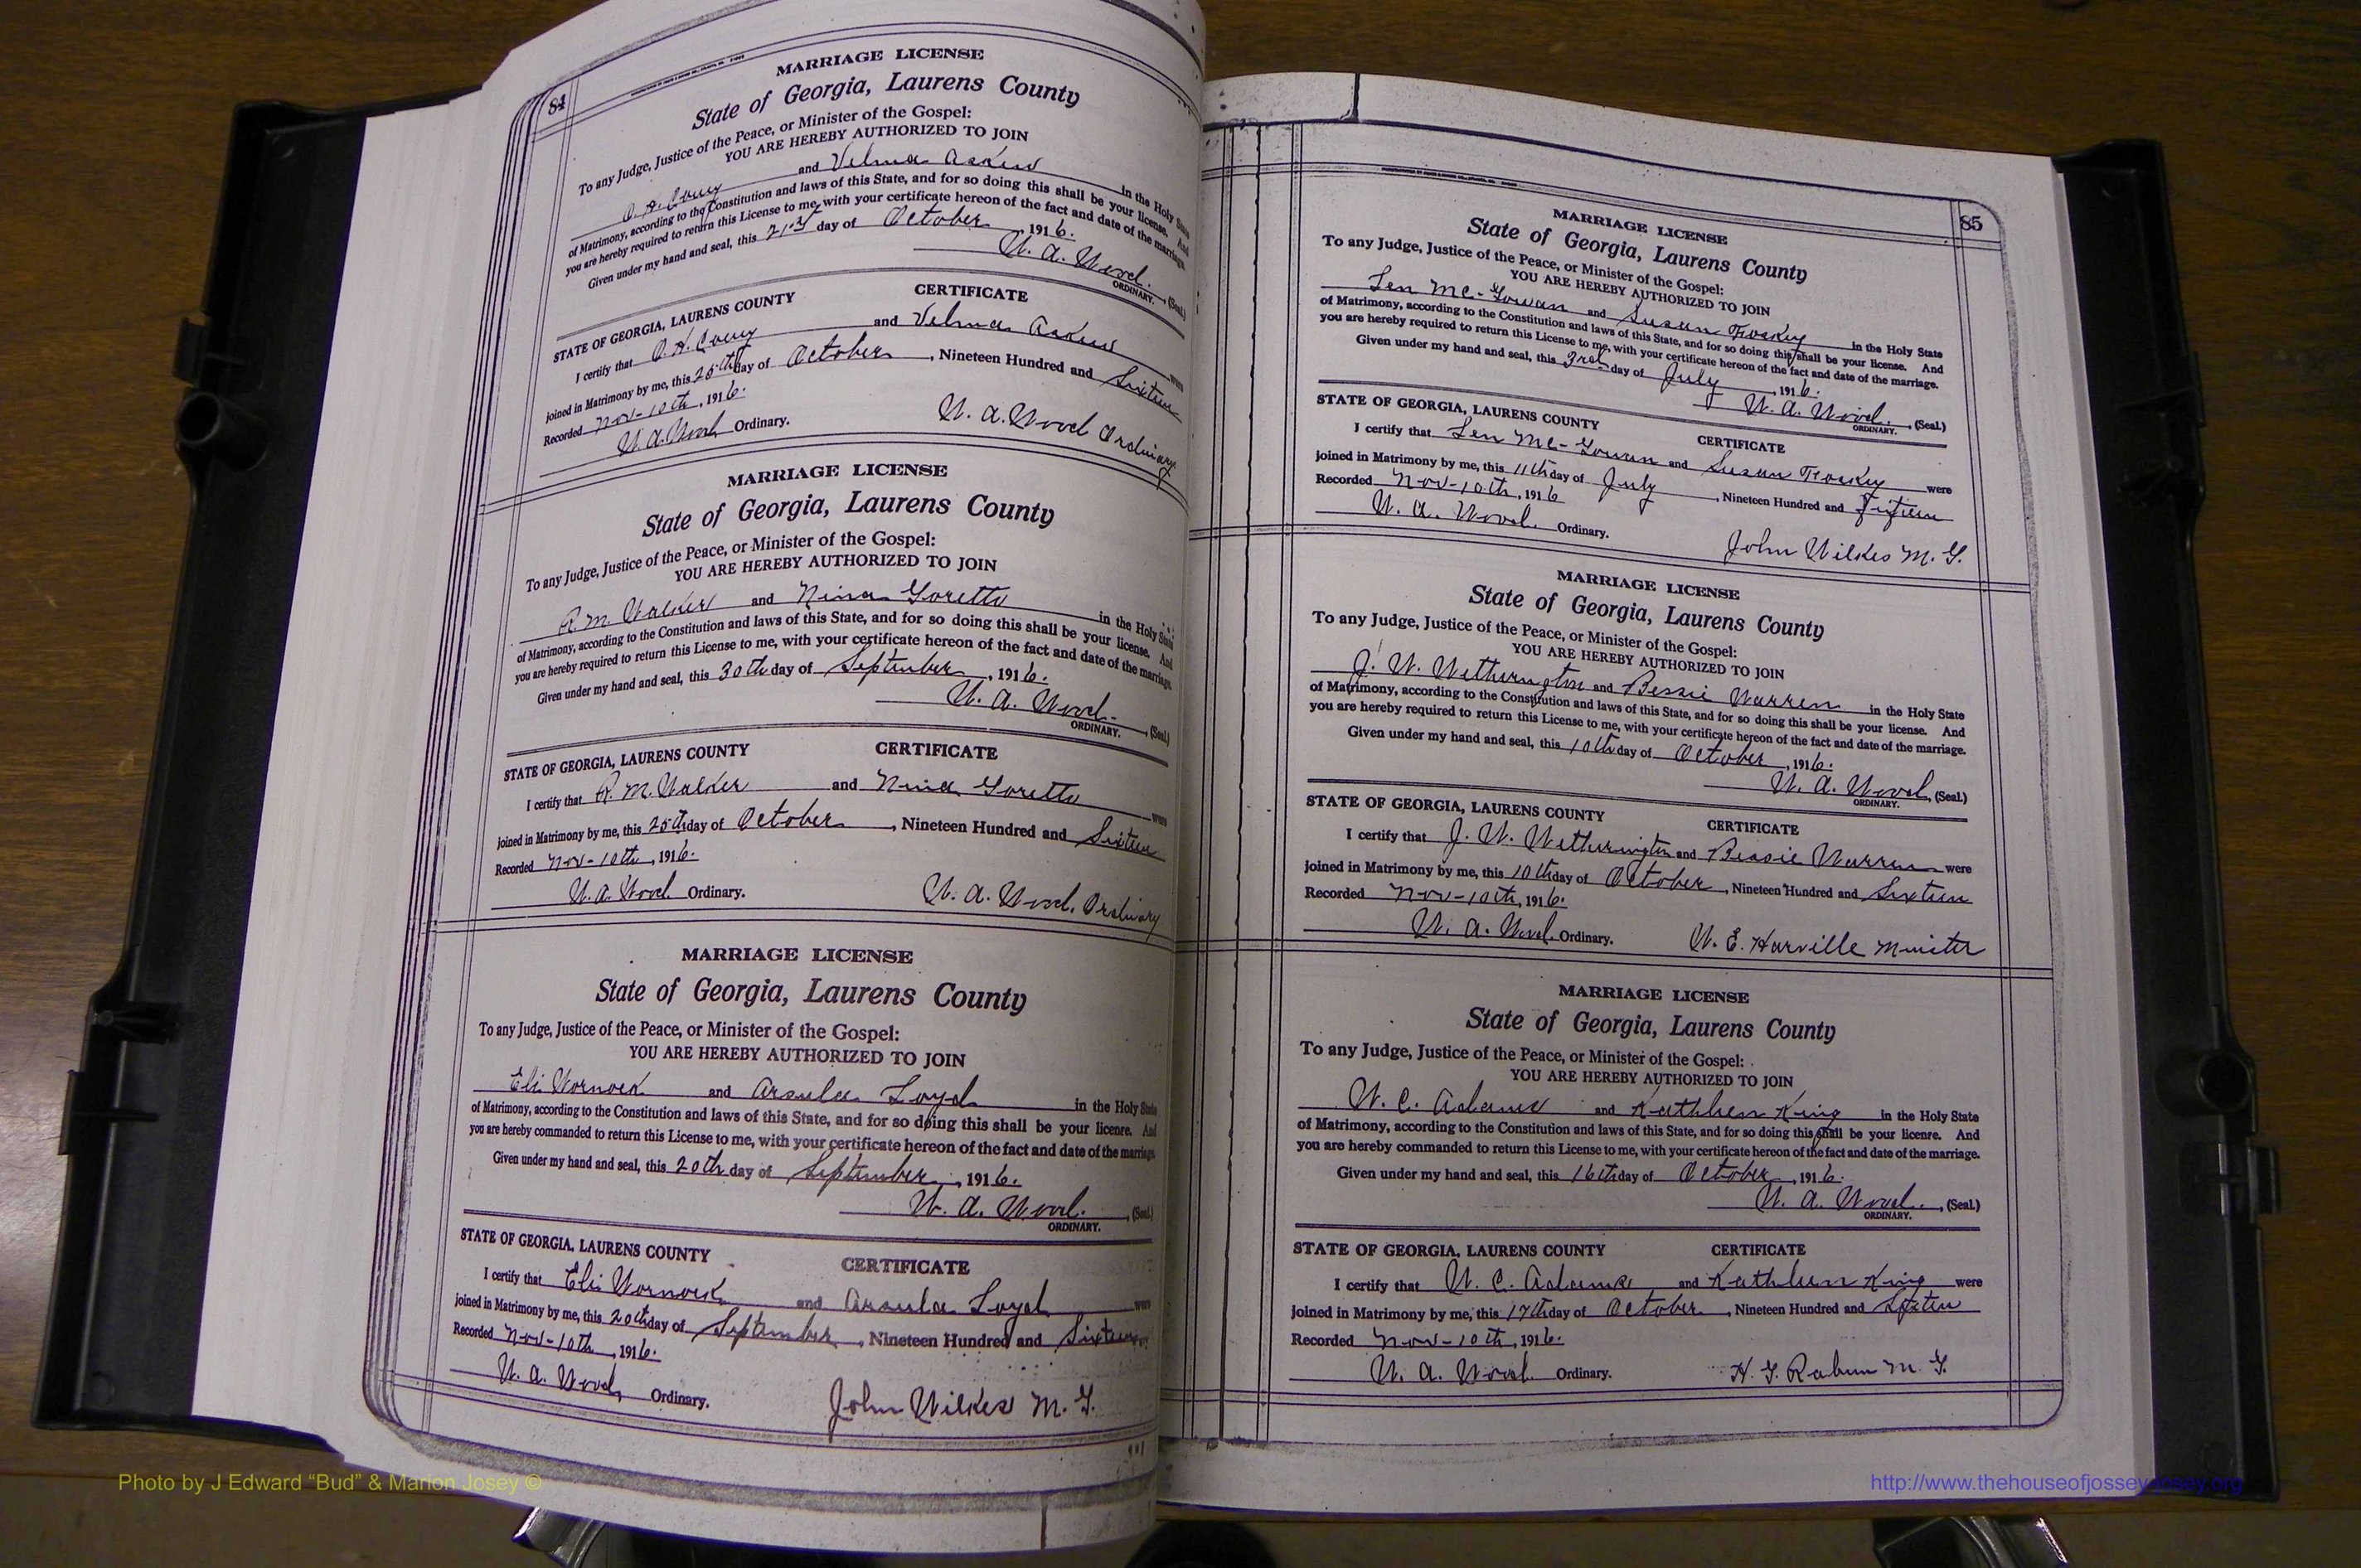 84
MARRIAGE LICENSE
State of Georgia, Laurens County
To any Judge, Justice of the Peace, or Minister of the Gospel:
YOU ARE HEREBY AUTHORIZED TO JOIN
and Velma Askew in the Holy State
of Matrimony, according to the Constitution and laws of this State, and for so doing this shall be your license. And
you are hereby required to return this License to me, with your certificate hereon of the fact and date of the marriage.
Given under my hand and seal, this 21st day of October 1916.
W. A. Wood. (Seal.)
ORDINARY.
STATE OF GEORGIA, LAURENS COUNTY CERTIFICATE
I certify that O. H. and Velma Askew were
joined in Matrimony by me, this 25th day of October, Nineteen Hundred and Sixteen
Recorded Nov-10th, 1916.
W. A. Wood Ordinary. W. A. Wood Ordinary
MARRIAGE LICENSE
State of Georgia, Laurens County
To any Judge, Justice of the Peace, or Minister of the Gospel:
YOU ARE HEREBY AUTHORIZED TO JOIN
R. M. Walker and Nina Goretto in the Holy State
of Matrimony, according to the Constitution and laws of this State, and for so doing this shall be your license. And
you are hereby required to return this License to me, with your certificate hereon of the fact and date of the marriage.
Given under my hand and seal, this 30th day of September, 1916.
W. A. Wood. (Seal.)
ORDINARY.
STATE OF GEORGIA, LAURENS COUNTY CERTIFICATE
I certify that R. M. Walker and Nina Goretto were
joined in Matrimony by me, this 25th day of October, Nineteen Hundred and Sixteen
Recorded Nov-10th, 1916.
W. A. Wood Ordinary. W. A. Wood. Ordinary
MARRIAGE LICENSE
State of Georgia, Laurens County
To any Judge, Justice of the Peace, or Minister of the Gospel:
YOU ARE HEREBY AUTHORIZED TO JOIN
Eli Wornock and Arsula Loyd in the Holy State
of Matrimony, according to the Constitution and laws of this State, and for so doing this shall be your license. And
you are hereby commanded to return this License to me, with your certificate hereon of the fact and date of the marriage.
Given under my hand and seal, this 20th day of September, 1916.
W. A. Wood. (Seal.)
ORDINARY.
STATE OF GEORGIA, LAURENS COUNTY CERTIFICATE
I certify that Eli Wornock and Arsula Loyd were
joined in Matrimony by me, this 20th day of September, Nineteen Hundred and Sixteen
Recorded Nov-10th, 1916.
W. A. Wood, Ordinary. John Wilkes M. G.
85
MARRIAGE LICENSE
State of Georgia, Laurens County
To any Judge, Justice of the Peace, or Minister of the Gospel:
YOU ARE HEREBY AUTHORIZED TO JOIN
Len Mc-Gowan and Susan Foskey in the Holy State
of Matrimony, according to the Constitution and laws of this State, and for so doing this shall be your license. And
you are hereby required to return this License to me, with your certificate hereon of the fact and date of the marriage.
Given under my hand and seal, this 3rd day of July, 1916.
W. A. Wood. (Seal.)
ORDINARY.
STATE OF GEORGIA, LAURENS COUNTY CERTIFICATE
I certify that Len Mc-Gowan and Susan Foskey were
joined in Matrimony by me, this 11th day of July, Nineteen Hundred and Fifteen
Recorded Nov-10th, 1916
W. A. Wood. Ordinary. John Wilkes M. G.
MARRIAGE LICENSE
State of Georgia, Laurens County
To any Judge, Justice of the Peace, or Minister of the Gospel:
YOU ARE HEREBY AUTHORIZED TO JOIN
J. W. Wetherington and Bessie Warren in the Holy State
of Matrimony, according to the Constitution and laws of this State, and for so doing this shall be your license. And
you are hereby required to return this License to me, with your certificate hereon of the fact and date of the marriage.
Given under my hand and seal, this 10th day of October, 1916.
W. A. Wood, (Seal.)
ORDINARY.
STATE OF GEORGIA, LAURENS COUNTY CERTIFICATE
I certify that J. W. Wetherington and Bessie Warren were
joined in Matrimony by me, this 10th day of October, Nineteen Hundred and Sixteen
Recorded Nov-10th, 1916.
W. A. Wood. Ordinary. W. E. Harville Minister
MARRIAGE LICENSE
State of Georgia, Laurens County
To any Judge, Justice of the Peace, or Minister of the Gospel:
YOU ARE HEREBY AUTHORIZED TO JOIN
W. C. Adams and Kathleen King in the Holy State
of Matrimony, according to the Constitution and laws of this State, and for so doing this shall be your license. And
you are hereby commanded to return this License to me, with your certificate hereon of the fact and date of the marriage.
Given under my hand and seal, this 16th day of October, 1916.
W. A. Wood., (Seal.)
ORDINARY.
STATE OF GEORGIA, LAURENS COUNTY CERTIFICATE
I certify that W. C. Adams and Kathleen King were
joined in Matrimony by me, this 17th day of October, Nineteen Hundred and Sixteen
Recorded Nov-10th, 1916.
W. A. Wood. Ordinary. H. G. Rabun M. G.
Photo by J Edward “Bud” & Marion Josey ©
http://www.thehouseofjossey-josey.org